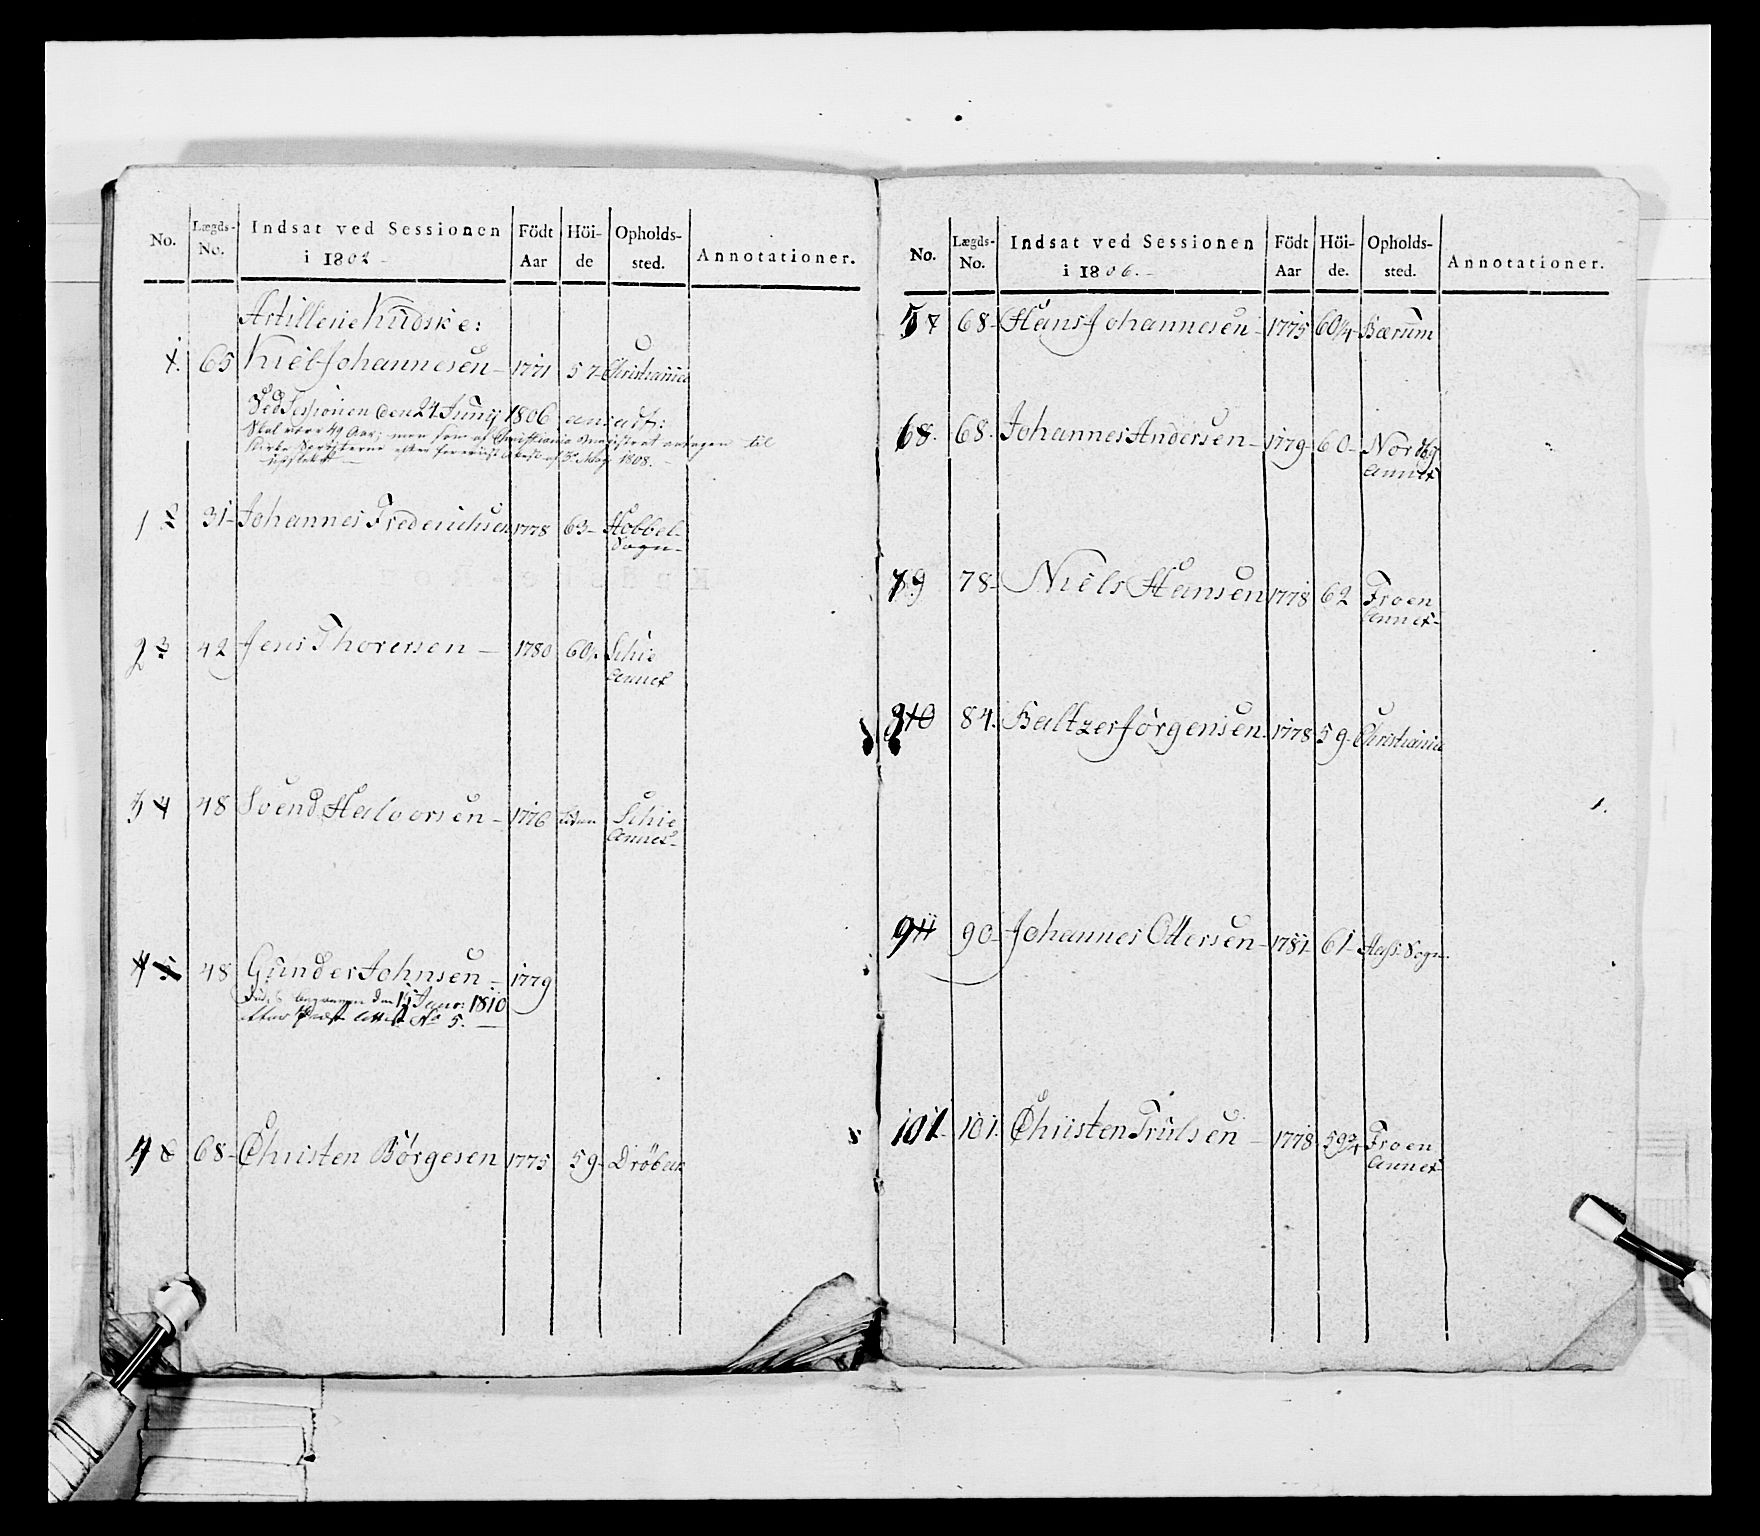 No. Lægds-No. Indsat ved Sessionen i 1802 - Födt Aar Höi-de Opholds-sted. Annotationer.
Artillerie Kudske:
1. 65 Kiel Johannesen - 1771 57- Christiania
Ved Sessionen den 24 Junij 1806 ansadt:
Skal være 49 Aar; men som af Christiania Magistrat antagen til
1 2 31- Johannes Frederichsen 1778 63- Hobbel-
Sogn-
2 3 42 Jens Thoresen - 1780 60. Schie
Annex
3 4 48 Svend Halvorsen - 1776 Schie
Annex-
4 5 48 Gunder Johnsen - 1779
den 15 Janr: 1810
efter Præste Attest No 5. -
4 6 68- Christen Börgesen 1775 59- Dröbak
No. Lægds-No. Indsat ved Sessionen i 1806. - Födt Aar Höi-de. Opholds-sted. Annotationer.
5 7 68- Hans Johannesen - 1775 60 1/4- Bærum
6 8. 68. Johannes Andersen - 1779 60- Nordbÿ
Annex
7 9 78- Niels Hansen 1778 62 Froen
Annex-
8 10 84. Baltzer Jörgensen. 1778 59- Christiania
9 11 90- Johannes Ottersen - 1781- 61- Aass Sogn.
10 1 101. Christen Trulsen - 1778 59 3/4 Froen
Annex